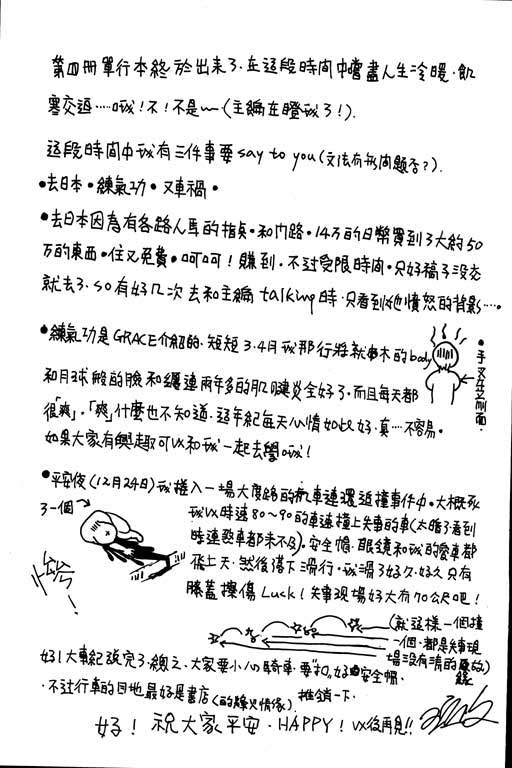 第四冊單行本終於出来了.在這段時間中嚐盡人生冷暖.飢
寒交迫……哦!不!不是~(主編在瞪我了!).
這段時間中我有三件事要say to you(文法有無問題否?).
•去日本•練氣功•又車禍•
•去日本因為有各路人馬的指点•和門路•14万的日幣買到了大約50
万的東西•住又免費•呵呵!賺到•不过受限時間•只好稿子沒交
就去了.so有好几次去和主編talking時.只看到她憤怒的背影…
•練氣功是GRACE介紹的.短短3.4月我那行將就木的body
和月球般的臉和纏連兩年多的肌腱炎全好了.而且每天都
很「爽」.「爽」什麼也不知道.這年紀每天心情如此好.真…不容易.
如果大家有興趣可以和我一起去學哦!
•手又在前面.
•平安夜(12月24日)我捲入一場大度路的汽車連環追撞事件中.大概死
了一個
我以時速80~90的車速撞上失事的車(太暗了看到
時連煞車都来不及).安全帽.眼鏡和我的愛車都
飛上天.然後落下滑行.我滑了好久.好久只有
膝蓋擦傷Luck!失事現場好大有70公尺吧!
(就這樣一個撞
一個.都是失事現
場沒有清的原故)
好!大事紀說完了.總之.大家要小心騎車.要"扣"好安全帽.
•不过行車的目地最好是書店(的緣
推銷一下.
好!祝大家平安.HAPPY!以後再見!!